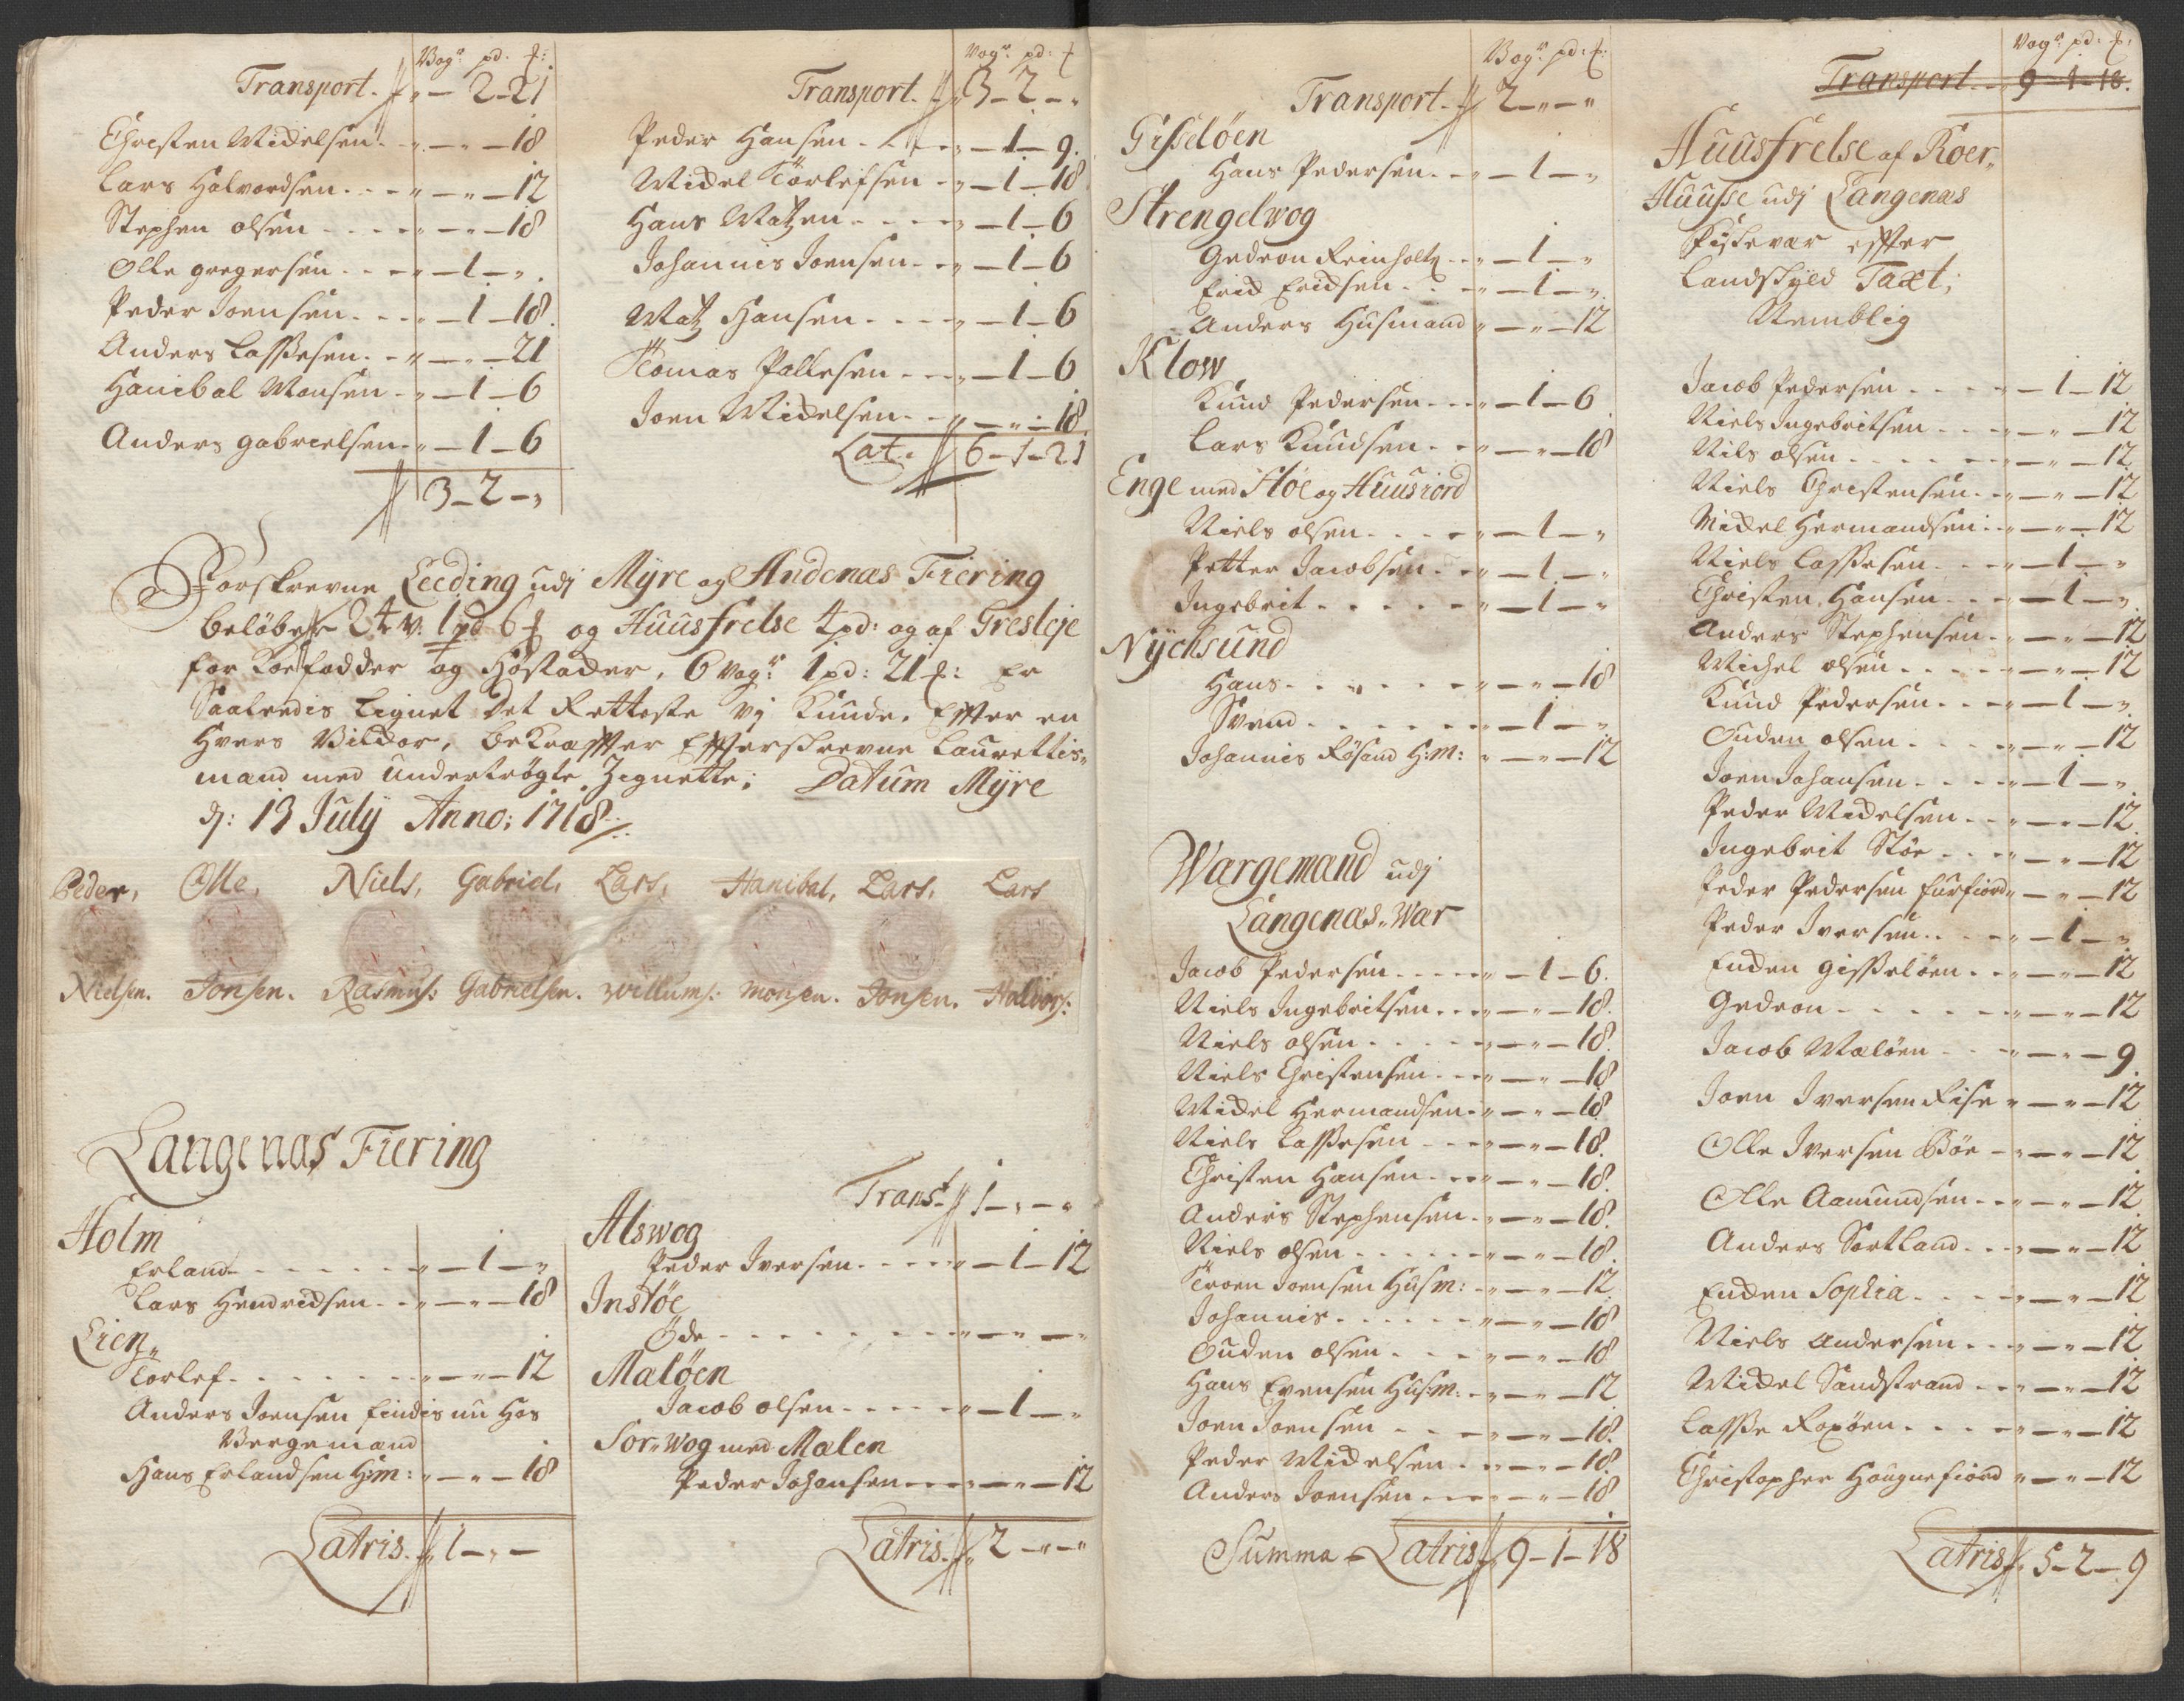 Vogr. pd. ℔:
Transport. „ — 2 — 21
Christen Michelsen „ — „ — 18
Lars Halvordsen „ — „ — 12
Stephen olsen „ — „ — 18
Olle gregersen „ — 1 — „
Peder Joensen „ — 1 — 18
Anders Lassesen „ — „ — 21
Hanibal Monsen „ — 1 — 6
Anders gabrielsen „ — 1 — 6
3 — 2 — „
Vogr. pd: ℔
Transport. 3 — 2 — „
Peder Hansen „ — 1 — 9.
Michel Torlefsen „ — 1 — 18
Hans Matzen „ — 1 — 6
Johannis Joensen „ — 1 — 6
Matz Hansen „ — 1 — 6
Tomas Pallesen „ — 1 — 6
Joen Michelsen „ — „ — 18
Lat. 6 — 1 — 21
Forskrevne Leeding udj Myre og Andenas Fiering
beløber 24 v. 1 pd 6 ℔ og Huusfrelse 4 pd: og af Gresleje
for Korfodder og Høstader, 6 vogr 1 pd: 21 ℔: Er
Saaledis Lignet Det Retteste vj Kunde. Efter en
Hvers Vilckor, bekræffter Efterskrevne Laurettis„
mand med undertrøgte Zignette; Datum Myre
dj: 13 July Anno: 1718
Peder, Olle, Niels, Gabriel, Lars, Hanibal, Lars, Lars
Nielsen. Jonsen. Rasmus: Gabrielsen. Willums: Monsen. Jonsen. Halvors:
Langenas Fiering
Holm
Erland „ — 1 — „
Lars Hendrichsen „ — „ — 18
Lien„
Torlef „ — „ — 12
Anders Joensen findis nu Hos
Vergemand
Hans Erlandsen H:m: „ — „ — 18
Latris. 1 — „ —
Transt 1 — „ — „
Alswog
Peder Iversen „ — 1 — 12
Instøe
Øde „ — „ — „
Maløen
Jacob olsen „ — 1 — „
Sor„Wog med Malen
Peder Johansen „ — „ — 12
Latris. 2 — „ — „
Vogr. pd: ℔:
Transport. 2 — „ — „
Gisseløen
Hans Pedersen „ — 1 — „
Strengelwog
Gedeon Reinholtz „ — 1 — „
Erich Erichsen „ — 1 — „
Anders Husmand „ — „ — 12
Klow
Knud Pedersen „ — 1 — 6
Lars Knudsen „ — „ — 18
Enge med Støe og Huusiord
Niels olsen „ — 1 — „
Petter Jacobsen „ — 1 — „
Ingebrit „ — 1 — „
Nychsund
Hans „ — „ — 18
Svend „ — 1 — „
Johannis Røsand H:m: „ — „ — 12
Wargemand udj
Langenas„War
Jacob Pedersen „ — 1 — 6.
Niels Ingebritsen „ — „ — 18.
Niels olsen „ — „ — 18.
Niels Christensen „ — „ — 18
Michel Hermandsen „ — „ — 18
Niels Lassesen „ — „ — 18.
Christen Hansen „ — „ — 18.
Anders Stephensen „ — „ — 18.
Niels olsen „ — „ — 18.
Troen Joensen Husm: „ — „ — 12.
Johannis „ — „ — 18
Ouden olsen „ — „ — 18
Hans Evensen Husm: „ — „ — 12
Joen Joensen „ — „ — 18.
Peder Michelsen „ — „ — 18.
Anders Joensen „ — „ — 18
Summa Latris 9 — 1 — 18
Vogr. pd: ℔:
Transport 9 — 1 — 18.
Huusfrelse af Roer„
Huusse udj Langenas
Fiskevær effter
Landskyld Taxt;
Nemblig
Jacob Pedersen „ — 1 — 12
Niels Ingebritsen „ — „ — 12
Nils olsen „ — „ — 12
Niels Christensen „ — „ — 12
Michel Hermandsen „ — „ — 12
Niels Lassesen „ — 1 — „
Christen Hansen „ — 1 — „
Anders Stephensen „ — „ — 12
Michel olsen „ — „ — 12
Knud Pedersen „ — 1 — „
Ouden olsen „ — „ — 12
Joen Johansen „ — 1 — „
Peder Michelsen „ — „ — 12
Ingebrit Støe „ — „ — 12
Peder Pedersen furfiord „ — „ — 12
Peder Iversen „ — 1 — „
Enden gisseløen „ — „ — 12
Gedeon „ — „ — 12
Jacob Maløen „ — „ — 9
Joen Iversen Rise „ — „ — 12
Olle Iversen Bøe „ — „ — 12
Olle Aamundsen „ — „ — 12
Anders Sortland „ — „ — 12
Enden Sophia „ — „ — 12
Niels Andersen „ — „ — 12
Michel Sandstrand „ — „ — 12
Lasse Roxøen „ — „ — 12
Christopher Haugnefiord „ — „ — 12
Latris 5 — 2 — 9